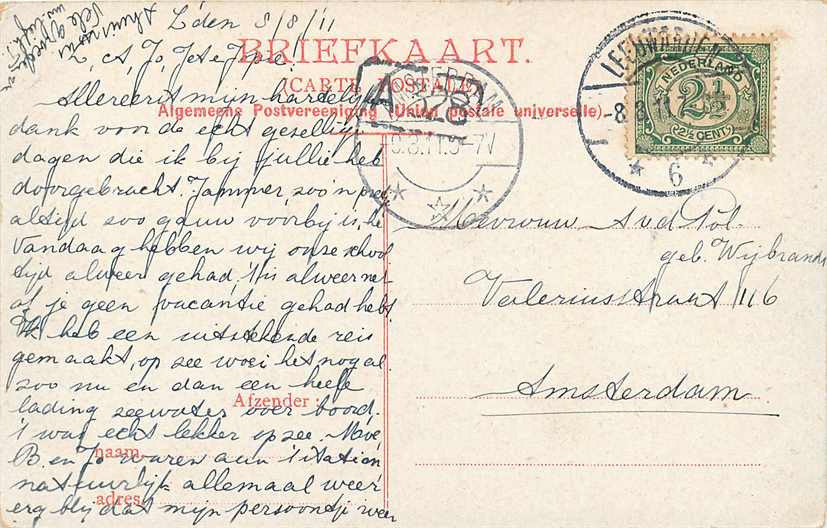 L'den 8/8/'11
BRIEFKAART.
(CARTE POSTALE)
Algemeene Postvereeniging (Union postale universelle).
L. A, Jo, Jet
Allereerst mijn hartelijk
dank voor de echt gezellige
dagen die ik bij jullie heb
doorgebracht. Jammer, zoo'n
altijd zoo gauw voorbij is, he
Vandaag hebben wij onze school
tijd alweer gehad, 't is alweer net
of je geen vacantie gehad hebt.
Ik heb een uitstekende reis
gemaakt, op zee woei het nog al
zoo nu en dan een heele
lading zeewater over boord.
't was echt lekker op zee. Moe,
B. en Jo waren aan 't station
natuurlijk allemaal weer
erg blij dat mijn persoontje weer
Vele groeten
Afzender:
naam
adres
LEEUWARDEN
-8.8.11.
6
NEDERLAND
2½
(2½ CENT)
A 328
5-7V
Mevrouw A v d Pol.
geb. Wijbrands
Valeriusstraat 116
Amsterdam